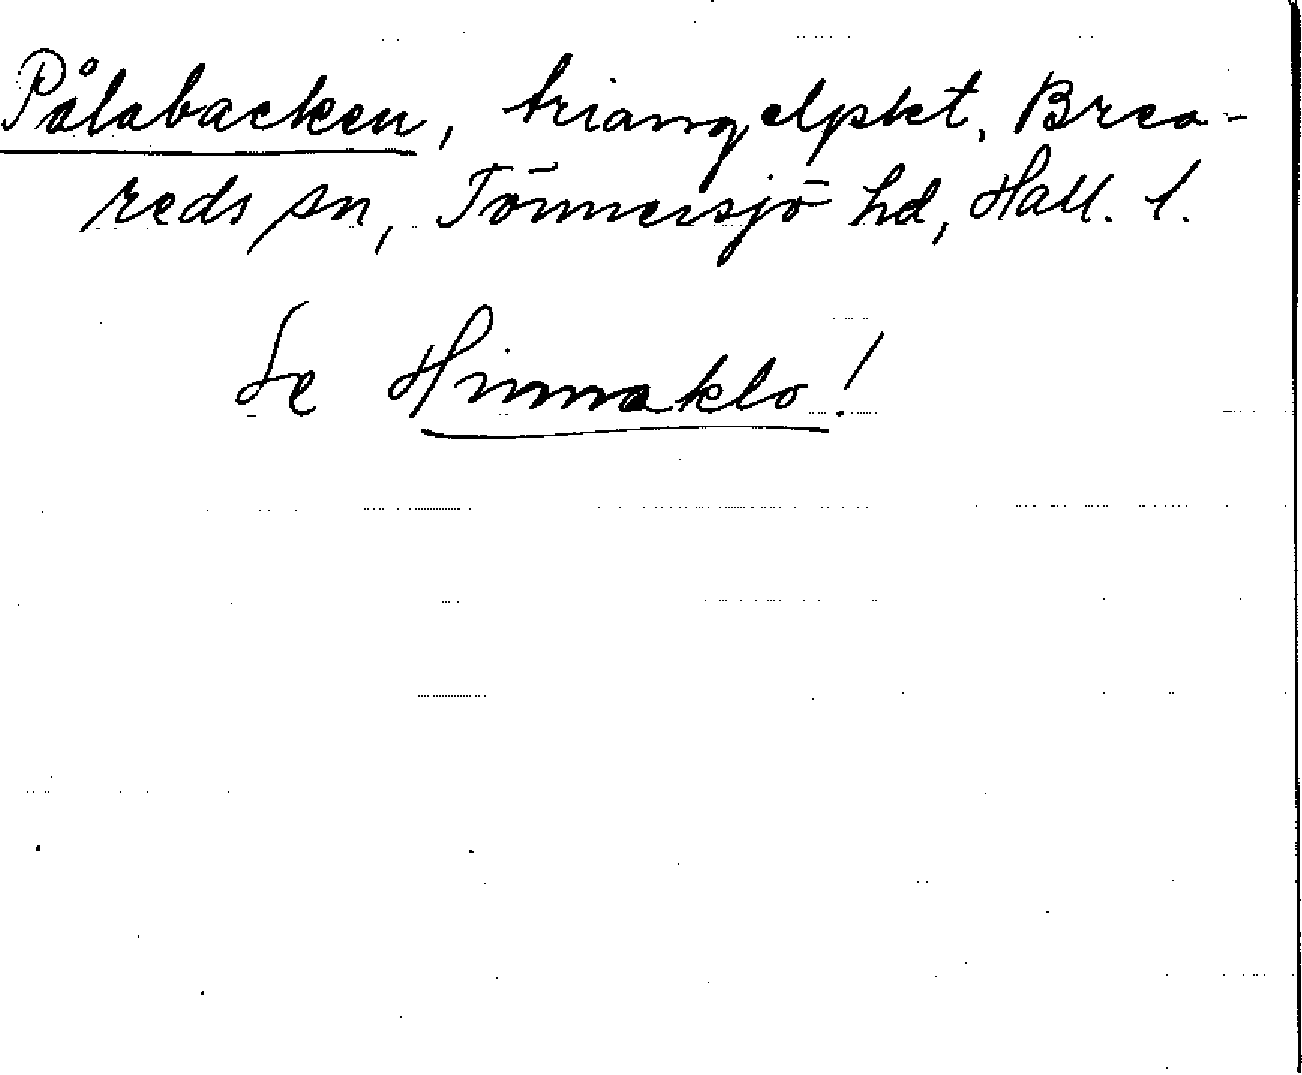 Pålabacken, triangelpkt, Brea-
reds sn, Tönnersjö hd, Hall. l.
Se Hinnaklo!